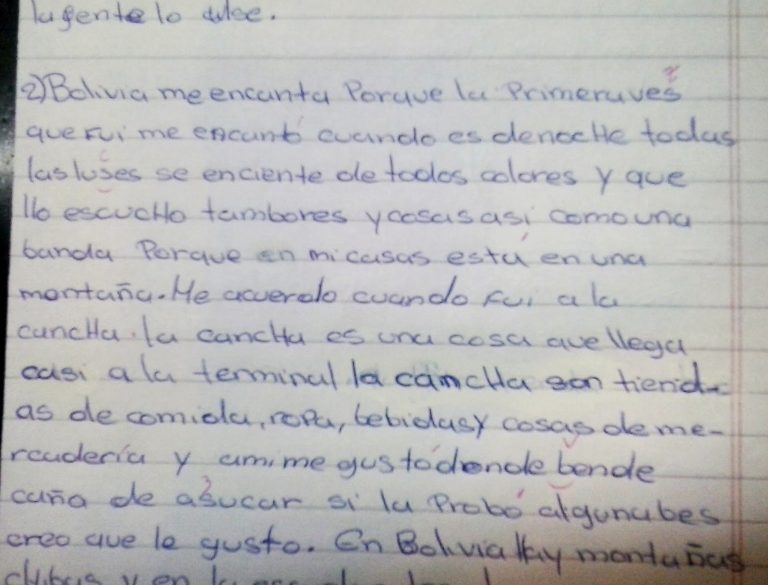 la gente lo dulce.
2) Bolivia me encanta Porque la Primera ves
que fui me encantó cuando es denoche todas
las luses se enciente de todos colores y que
llo escucho tambores y cosas asi como una
banda Porque en mi casas está en una
montaña. Me acuerdo cuando fui a la
cancha. la cancha es una cosa que llega
casi a la terminal la cancha son tiend-
as de comida, ropa, bebidas y cosas de me-
rcadería y ami me gustó donde bende
caña de asucar si la Probó alguna bes
creo que le gusto. En Bolivia Hay montañas
y en